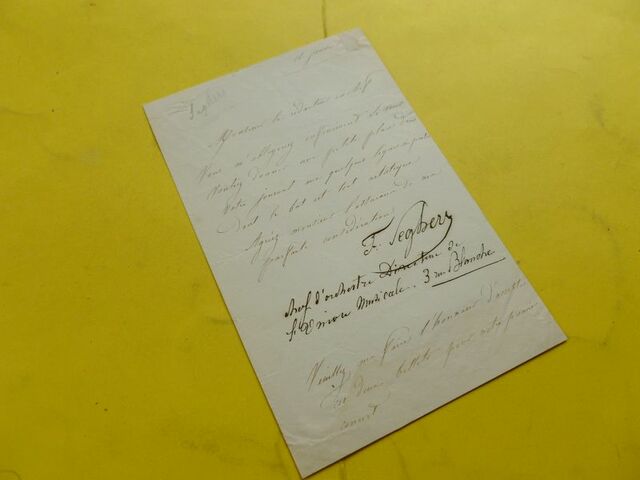 Seghers
16 janvier
Monsieur le rédacteur en chef
Vous m'obligerez infiniment si vous
vouliez donner une petite place dans
votre journal aux quelques lignes
dont le but est tout artistique
Agréez monsieur l'assurance de ma
parfaite considération
F. Seghers
chef d'orchestre Directeur de
l'Union Musicale. 3 rue Blanche
Veuillez me faire l'honneur d'accepter
deux billets pour notre premier
concert